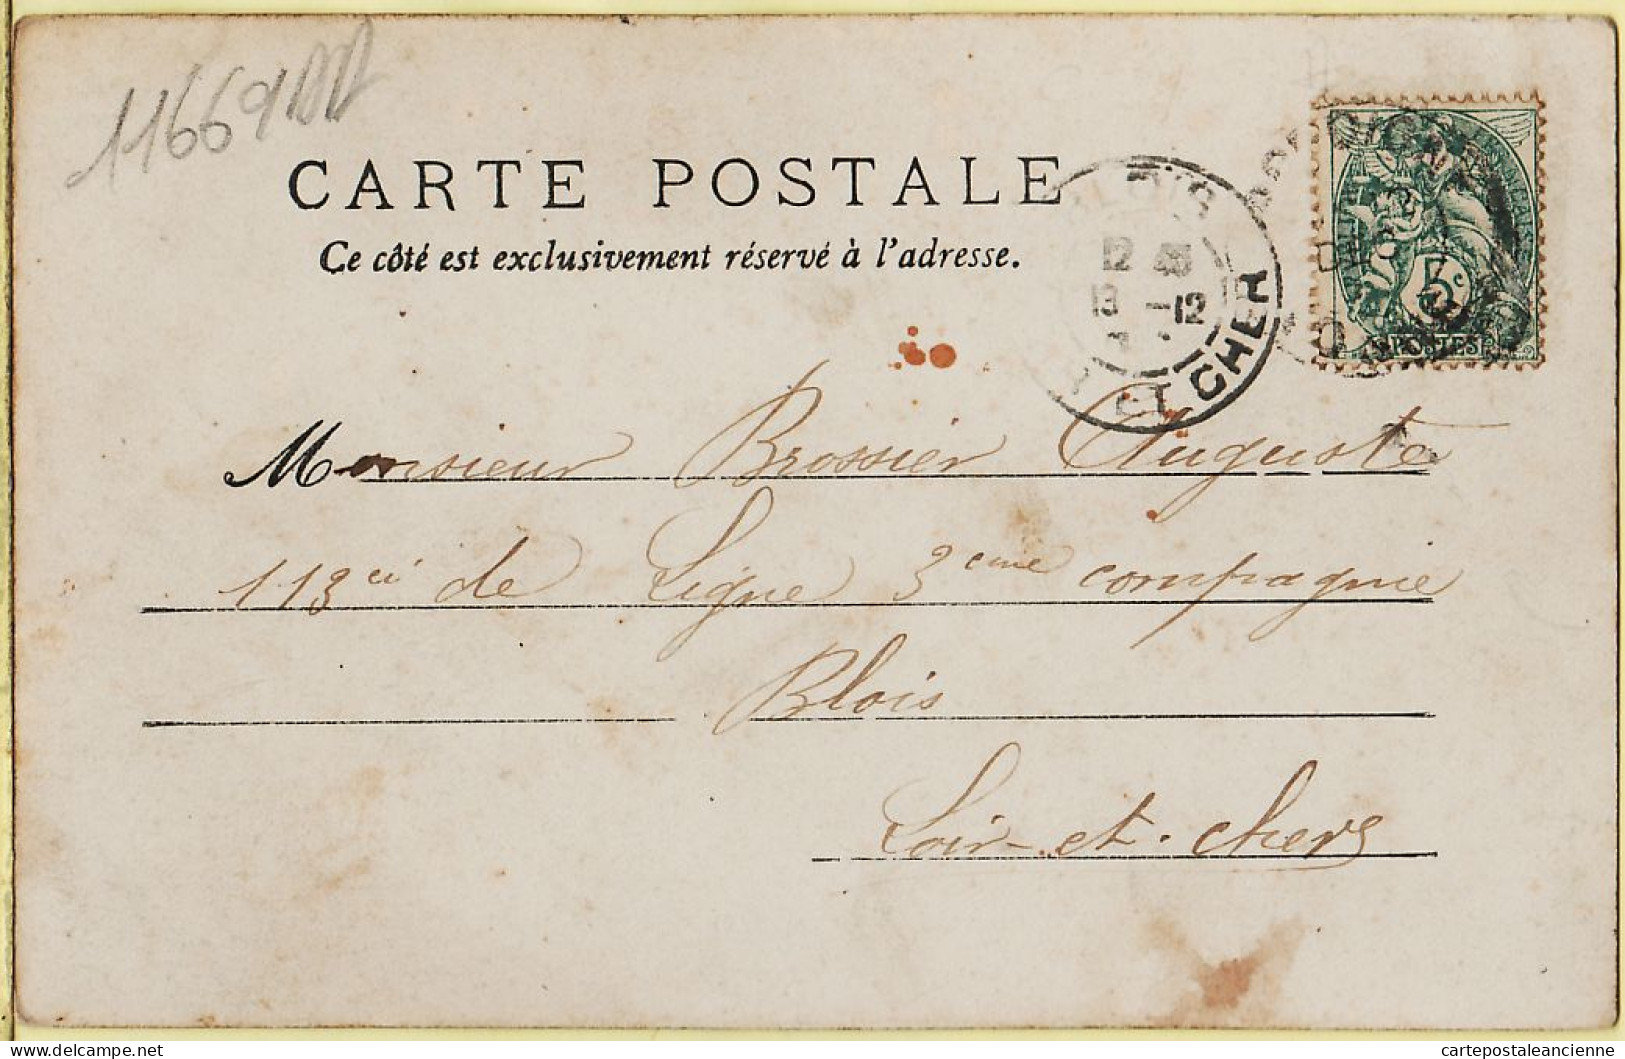 11669
CARTE POSTALE
Ce côté est exclusivement réservé à l'adresse.
BLOIS
12 45
13 -12
ET-CHER
5c
POSTES
Monsieur Brossier Auguste
113 de Ligne 3eme compagnie
Blois
Loir-et-Chers
cartepostaleancienne.com